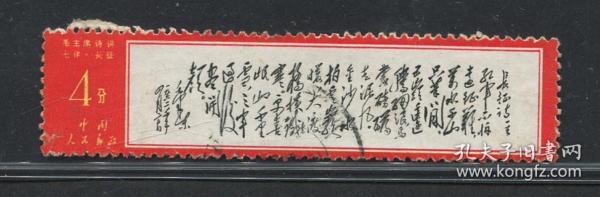 毛主席诗词
七律·长征
4分
中国
人民邮政
长征诗一首
红军不怕
远征难
万水千山
只等闲
五岭逶迤
腾细浪
乌蒙磅礴
走泥丸
金沙水拍
云崖暖
大渡桥横
铁索寒
更喜岷山
千里雪
三军过后
尽开颜
毛泽东
孔夫子旧书网
www.kongfz.com